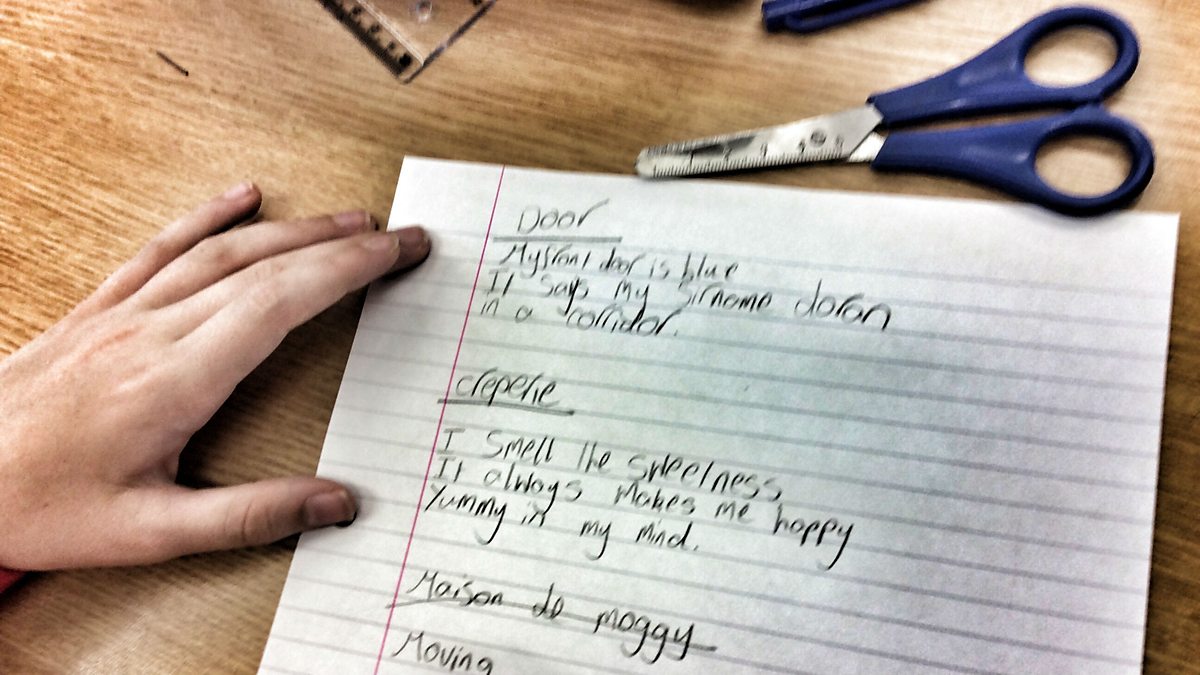 Door
My front door is blue
It says my sirname doran
in a corridor.
creperie
I smell the sweetness
It always makes me happy
Yummy in my mind.
Maison de moggy
Moving